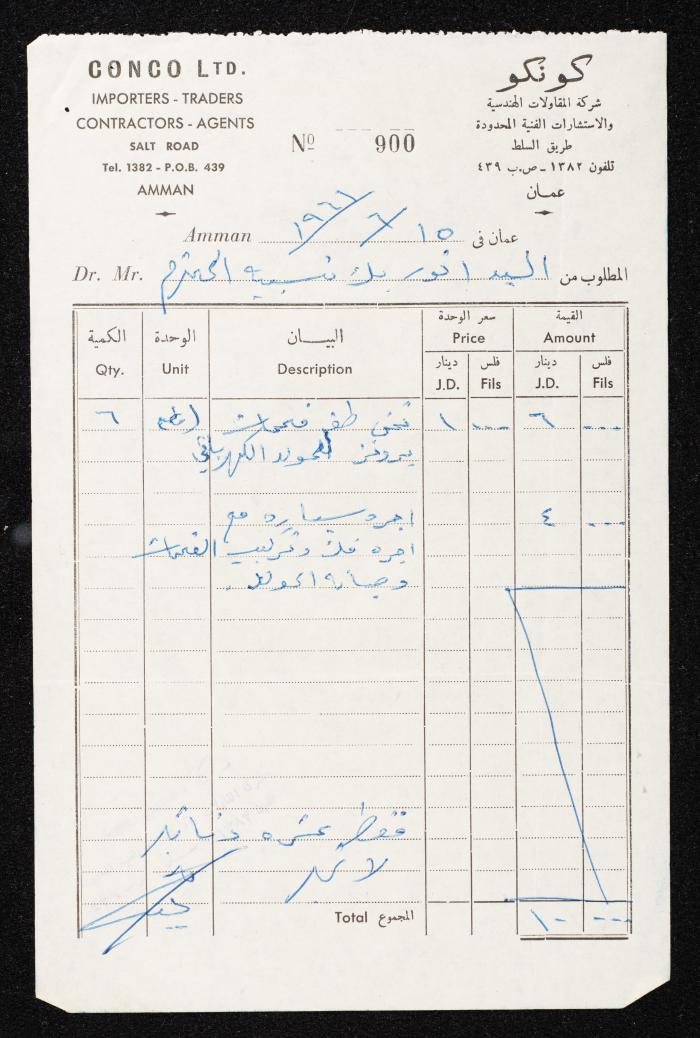 CONCO LTD.
IMPORTERS - TRADERS
CONTRACTORS - AGENTS
SALT ROAD
Tel. 1382 - P.O.B. 439
AMMAN
Nº 900
كونكو
شركة المقاولات الهندسية
والاستشارات الفنية المحدودة
طريق السلط
تلفون ١٣٨٢ - ص.ب ٤٣٩
عمان
Amman ١٥ / ٦ / عمان في
Dr. Mr. المطلوب من السيد انور بك نسيبه المحترم
الكمية الوحدة البيـــان سعر الوحدة القيمة
Qty. Unit Description Price Amount
دينار فلس دينار فلس
J.D. Fils J.D. Fils
٦ ثمن طقم فحمات ١ ... ٦ ...
للمولد الكهربائي
اجره سياره مع ٤ ...
اجره فك وتركيب الفحمات
وصيانه المولد.
فقط عشره دنانير
لا غير
Total المجموع ١٠ ...